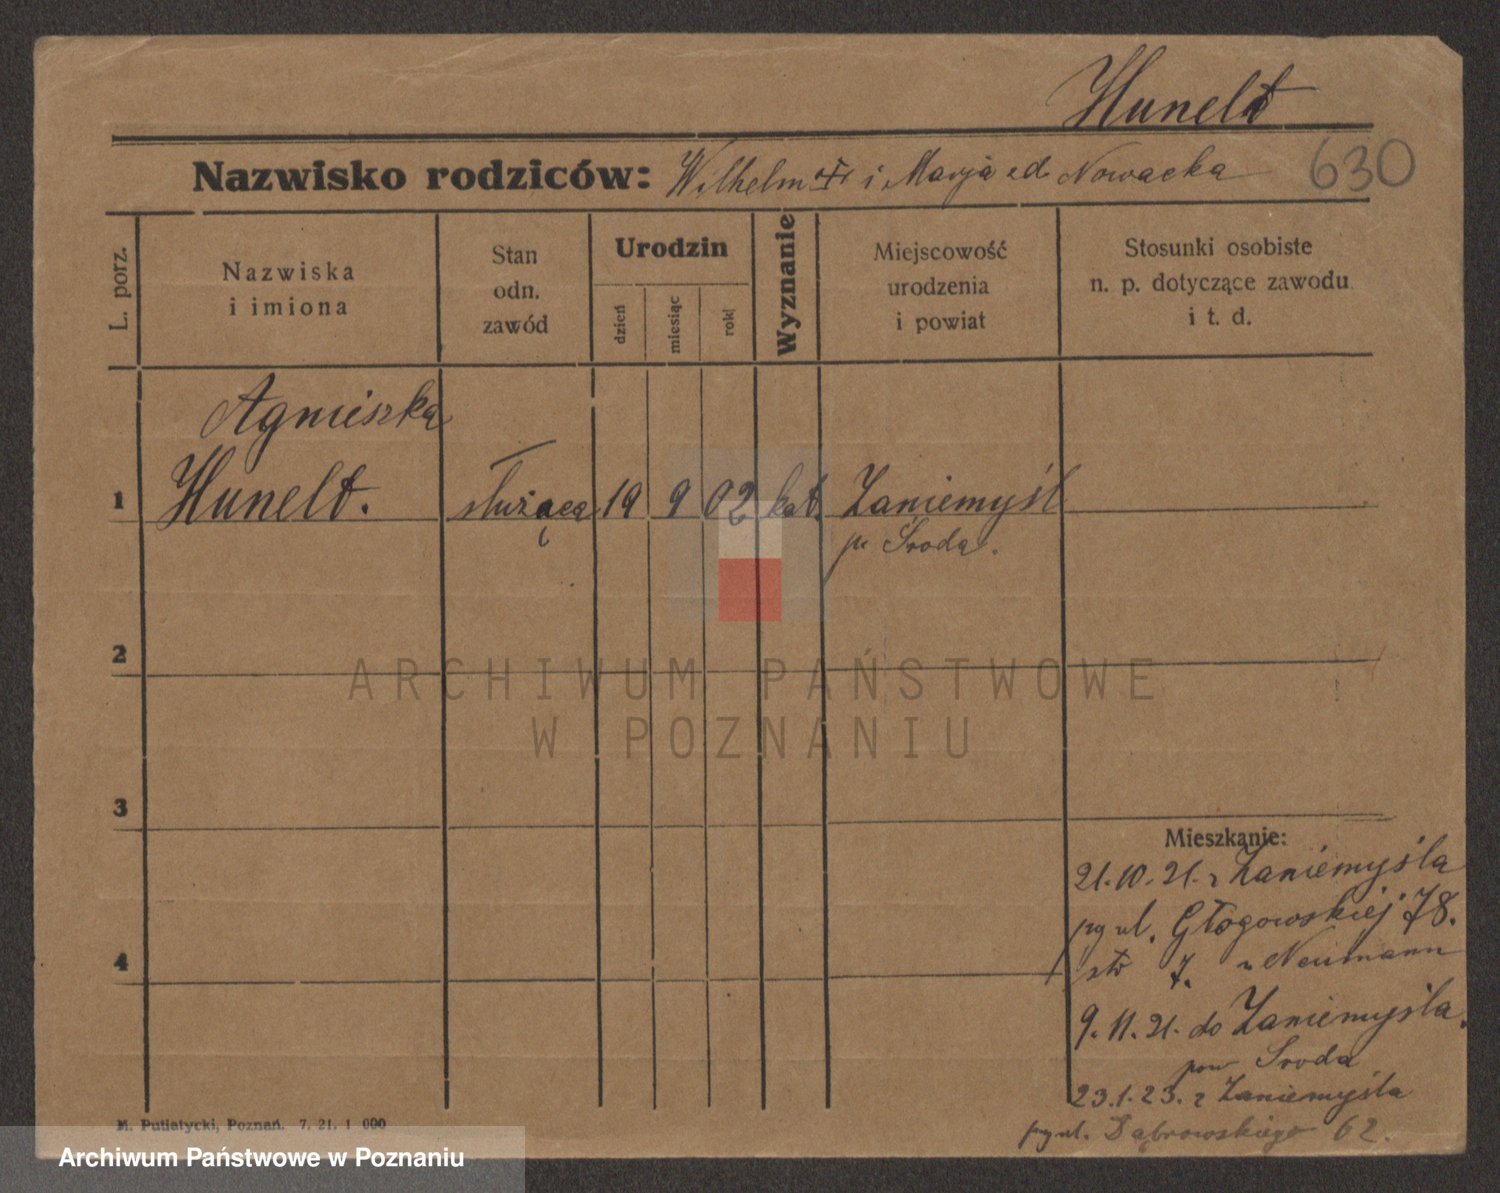 Hunelt
Nazwisko rodziców: Wilhelm i Marja zd. Nowacka 630
L. porz.
Nazwiska
i imiona
Stan
odn.
zawód
Urodzin
dzień
miesiąc
rok
Wyznanie
Miejscowość
urodzenia
i powiat
Stosunki osobiste
n. p. dotyczące zawodu
i t. d.
Agnieszka
1 Hunelt. służąca 19 9 02 kat. Zaniemyśl
p. Środa.
2
ARCHIWUM PAŃSTWOWE
W POZNANIU
3
Mieszkanie:
21.10.21. z Zaniemyśla
ul. Głogowskiej 78.
7. Neumann
4
9.11.21. do Zaniemyśla.
pow Środa
23.1.23. z Zaniemyśla
ul. Dąbrowskiego 62.
M. Putiatycki, Poznań. 7. 21. 1 000
Archiwum Państwowe w Poznaniu